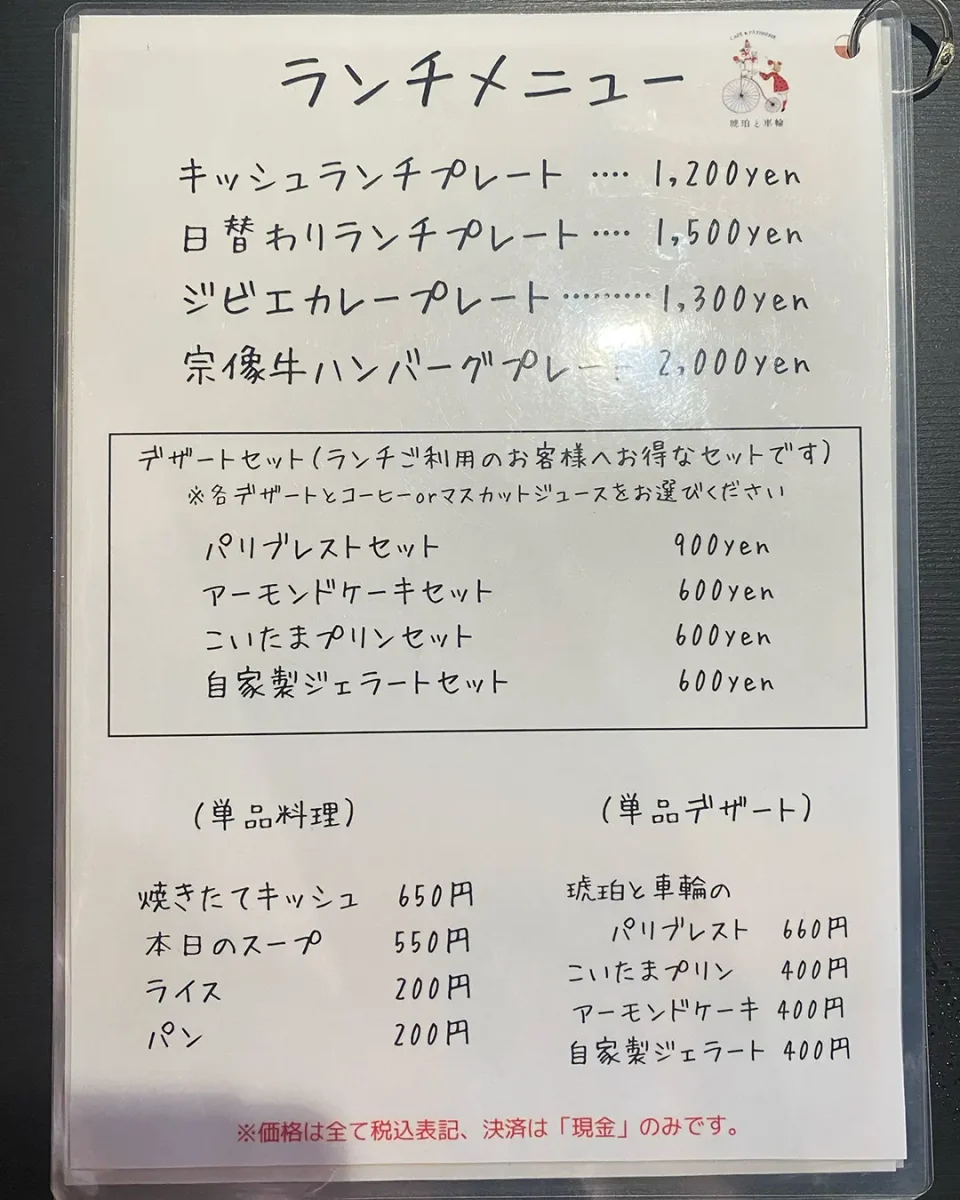 ランチメニュー
CAFE & PATISSERIE
琥珀と車輪
キッシュランチプレート ···· 1,200yen
日替わりランチプレート ···· 1,500yen
ジビエカレープレート ········· 1,300yen
宗像牛ハンバーグプレート 2,000yen
デザートセット(ランチご利用のお客様へお得なセットです)
※各デザートとコーヒーorマスカットジュースをお選びください
パリブレストセット 900yen
アーモンドケーキセット 600yen
こいたまプリンセット 600yen
自家製ジェラートセット 600yen
(単品料理)
焼きたてキッシュ 650円
本日のスープ 550円
ライス 200円
パン 200円
(単品デザート)
琥珀と車輪の
パリブレスト 660円
こいたまプリン 400円
アーモンドケーキ 400円
自家製ジェラート 400円
※価格は全て税込表記、決済は「現金」のみです。